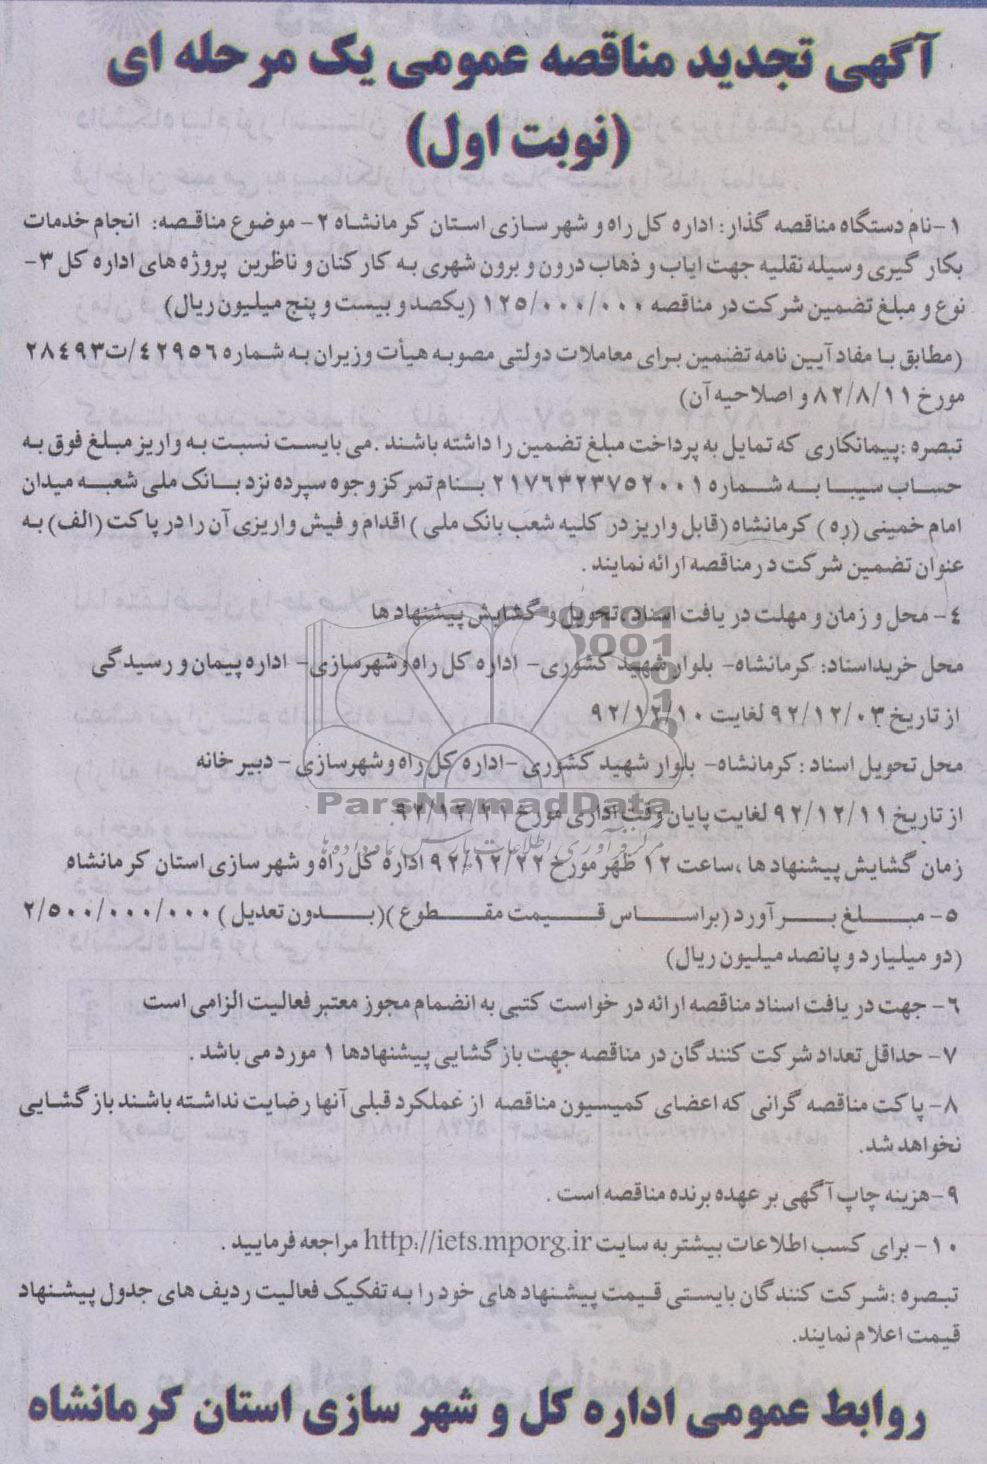 آگهی تجدید مناقصه عمومی یک مرحله ای
(نوبت اول)
۱-نام دستگاه مناقصه گذار: اداره کل راه و شهر سازی استان کرمانشاه ۲- موضوع مناقصه: انجام خدمات
بکار گیری وسیله نقلیه جهت ایاب و ذهاب درون و برون شهری به کارکنان و ناظرین پروژه های اداره کل ۳-
نوع و مبلغ تضمین شرکت در مناقصه ۱۲۵/۰۰۰/۰۰۰ (یکصد و بیست و پنج میلیون ریال)
(مطابق با مفاد آیین نامه تضمین برای معاملات دولتی مصوبه هیأت وزیران به شماره ۴۲۹۵۶/ت۲۸۴۹۳
مورخ ۸۲/۸/۱۱ و اصلاحیه آن)
تبصره :پیمانکاری که تمایل به پرداخت مبلغ تضمین را داشته باشند .می بایست نسبت به واریز مبلغ فوق به
حساب سیبا به شماره ۲۱۷۶۳۲۳۷۵۲۰۰۱ بنام تمرکز وجوه سپرده نزد بانک ملی شعبه میدان
امام خمینی (ره) کرمانشاه (قابل واریز در کلیه شعب بانک ملی ) اقدام و فیش واریزی آن را در پاکت (الف) به
عنوان تضمین شرکت در مناقصه ارائه نمایند .
۴- محل و زمان و مهلت دریافت اسناد،تحویل و گشایش پیشنهادها
محل خریداسناد: کرمانشاه- بلوار شهید کشوری- اداره کل راه وشهرسازی- اداره پیمان و رسیدگی
از تاریخ ۹۲/۱۲/۰۳ لغایت ۹۲/۱۲/۱۰
محل تحویل اسناد : کرمانشاه- بلوار شهید کشوری -اداره کل راه وشهرسازی - دبیرخانه
ParsNamadData
از تاریخ ۹۲/۱۲/۱۱ لغایت پایان وقت اداری مورخ ۹۲/۱۲/۲۱
مرکز فرآوری اطلاعات پارس نماد داده ها
زمان گشایش پیشنهادها ،ساعت ۱۲ ظهر مورخ ۹۲/۱۲/۲۲ اداره کل راه و شهر سازی استان کرمانشاه
۵- مبلغ برآورد (براساس قیمت مقطوع )(بدون تعدیل ) ۲/۵۰۰/۰۰۰/۰۰۰
(دو میلیارد و پانصد میلیون ریال)
۶- جهت دریافت اسناد مناقصه ارائه درخواست کتبی به انضمام مجوز معتبر فعالیت الزامی است
۷- حداقل تعداد شرکت کنندگان در مناقصه جهت باز گشایی پیشنهادها ۱ مورد می باشد .
۸- پاکت مناقصه گرانی که اعضای کمیسیون مناقصه از عملکرد قبلی آنها رضایت نداشته باشند باز گشایی
نخواهد شد.
۹-هزینه چاپ آگهی بر عهده برنده مناقصه است .
۱۰- برای کسب اطلاعات بیشتر به سایت http://iets.mporg.ir مراجعه فرمایید .
تبصره :شرکت کنندگان بایستی قیمت پیشنهادهای خود را به تفکیک فعالیت ردیف های جدول پیشنهاد
قیمت اعلام نمایند.
روابط عمومی اداره کل و شهر سازی استان کرمانشاه